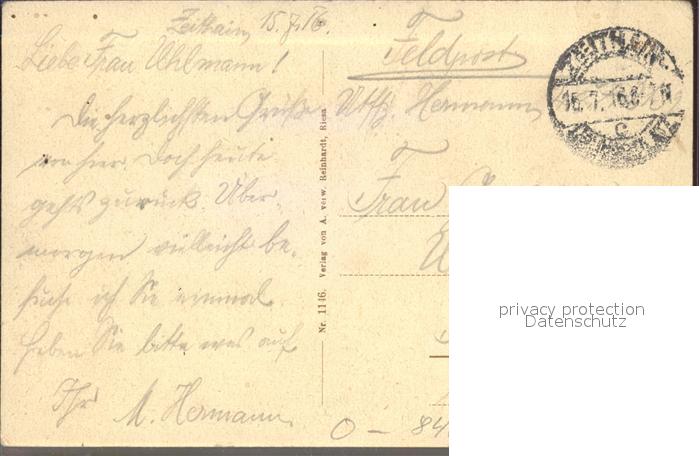 Zeithain, 15.7.16.
Liebe Frau Uhlmann!
Die herzlichsten Grüße
von hier. Doch heute
gehts zurück. Über-
morgen vielleicht be-
suche ich Sie einmal
heben Sie bitte was auf
Ihr
M. Hermann.
Nr. 1146. Verlag von A. verw. Reinhardt, Riesa
Feldpost
ZEITHAIN
16.7.16
c
Uffz. Hermann
Frau
O - 84
privacy protection
Datenschutz